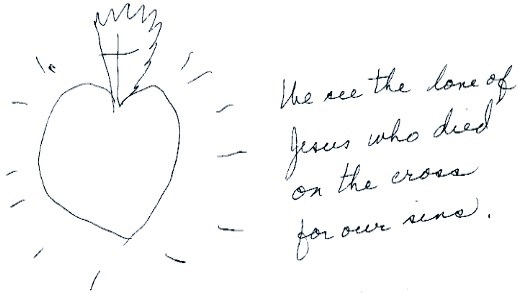 We see the love of
Jesus who died
on the cross
for our sins.